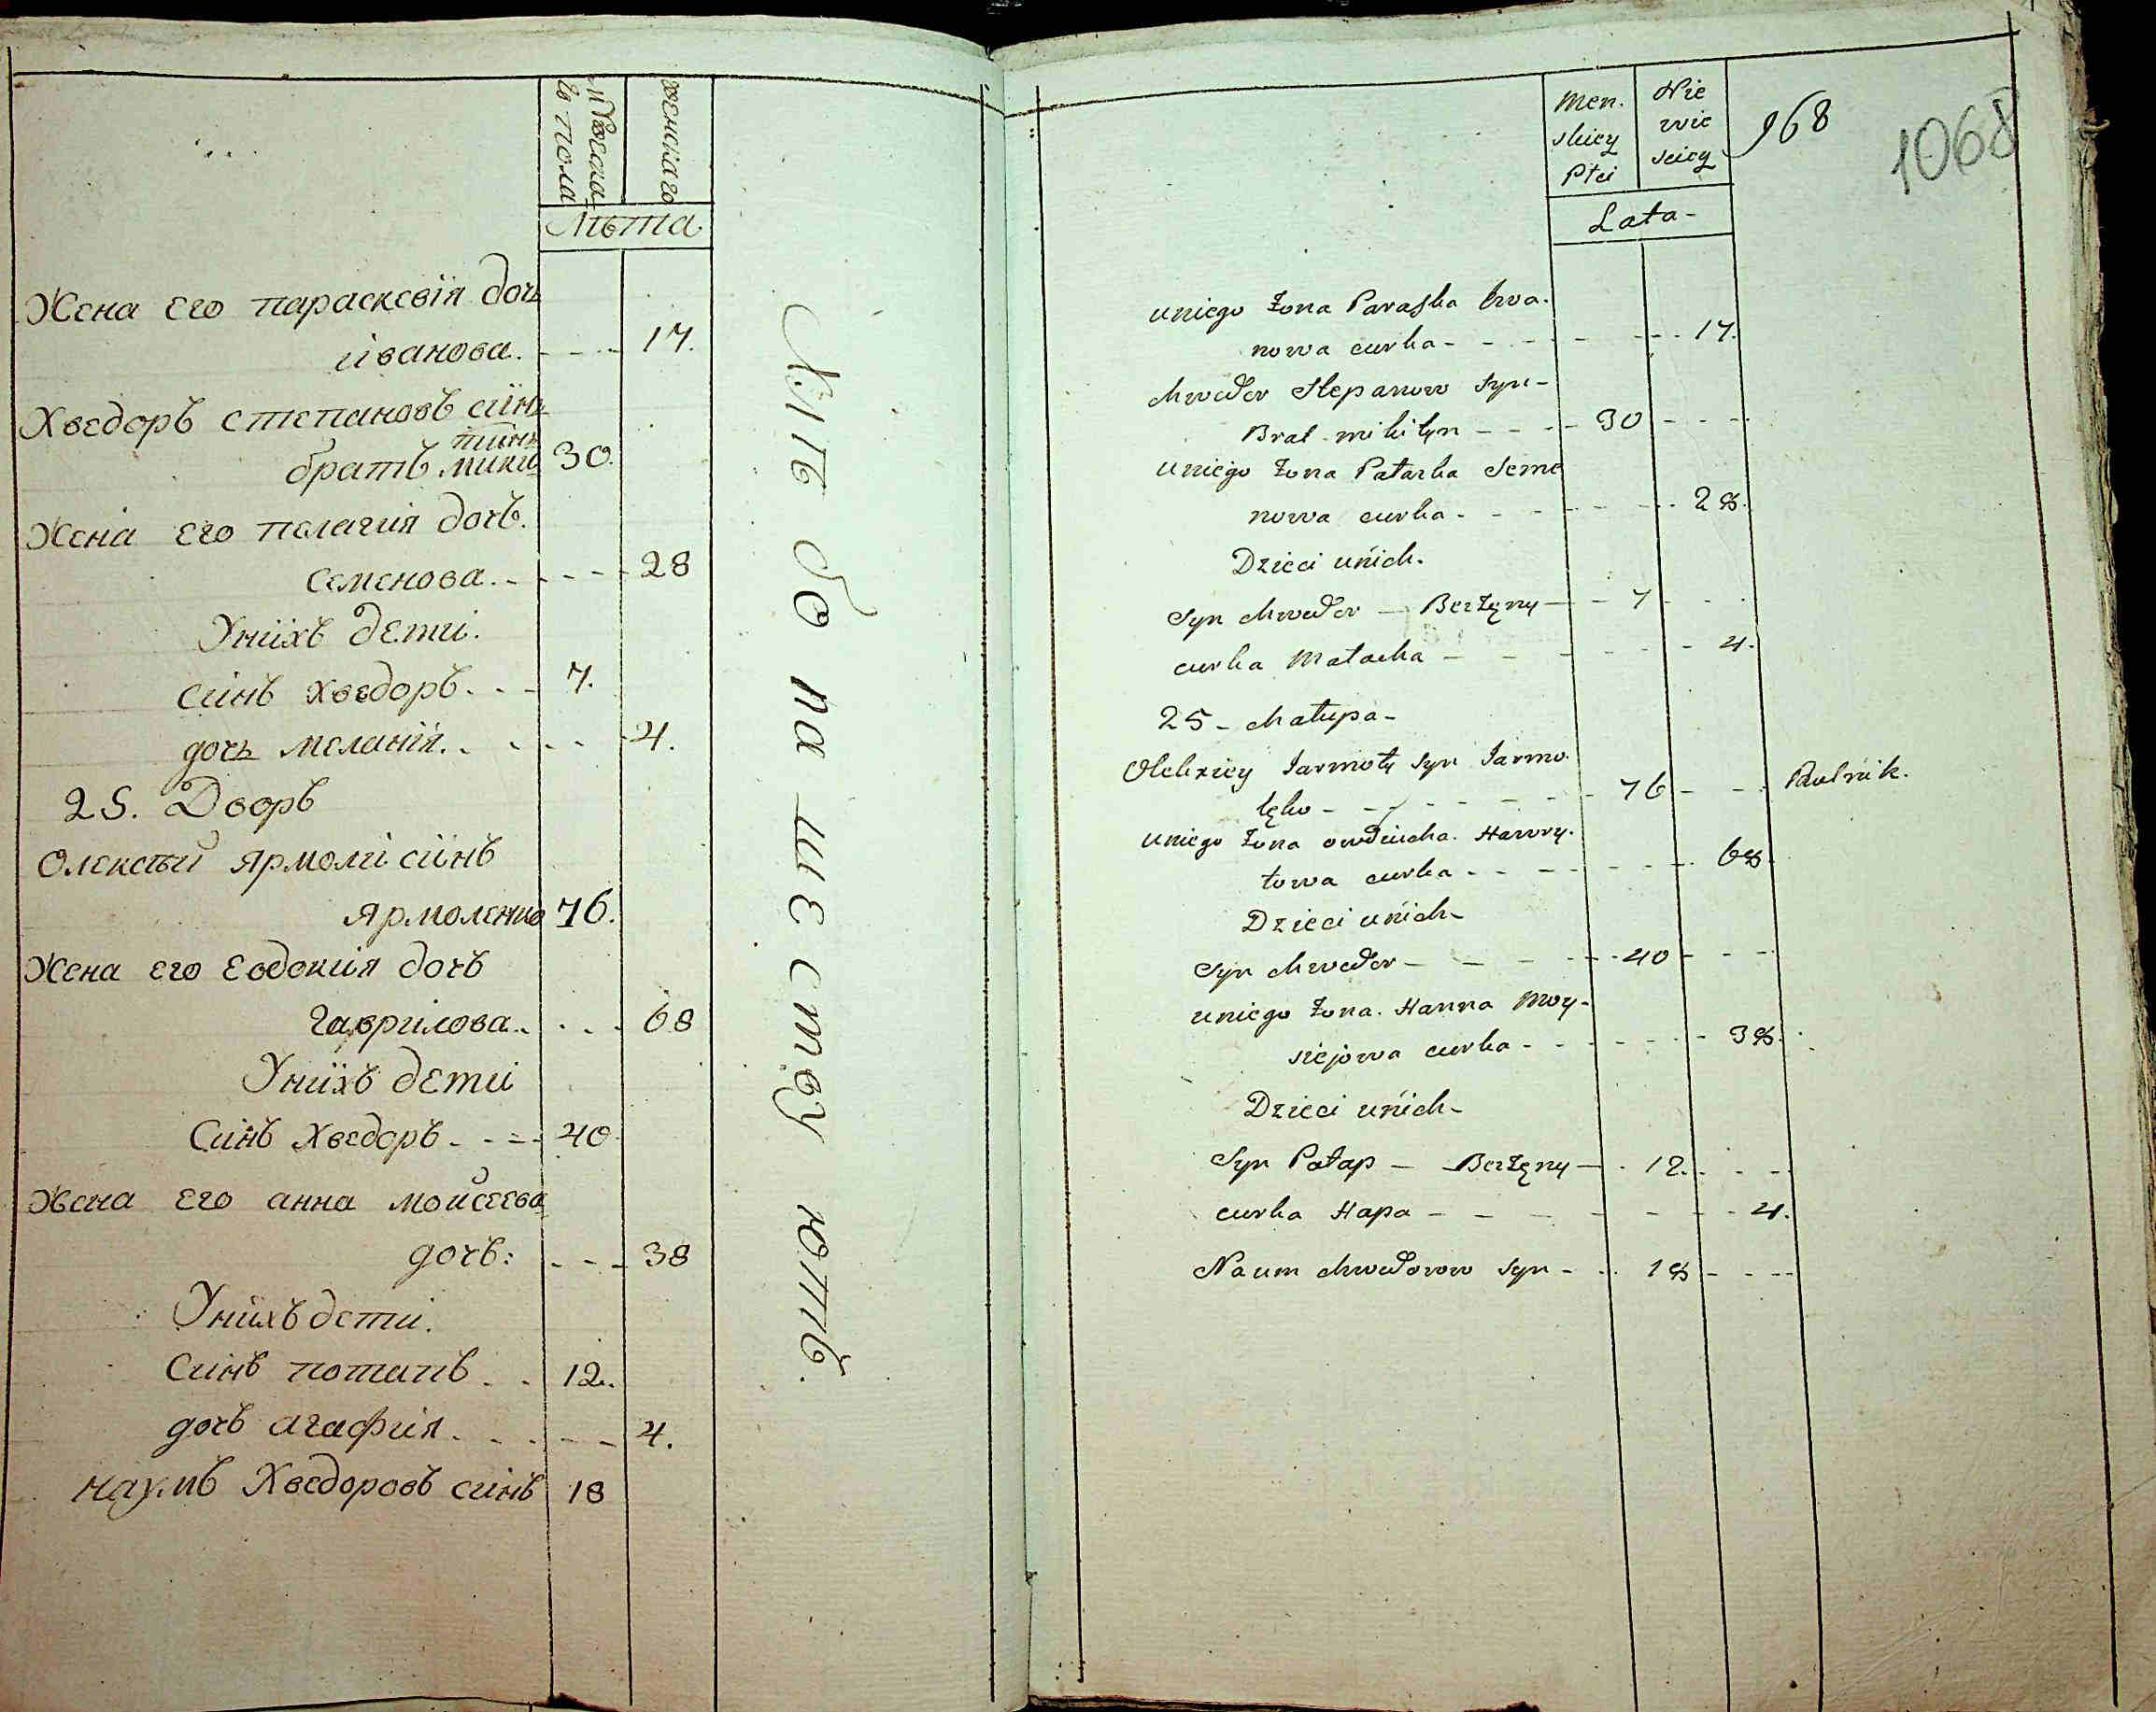 мужеска
го пола
женскаго
Лѣта
Жена его параскевія дочь
іванова. - - - 17.
Хведоръ степановъ синъ
братъ мики
тинъ 30.
Жена его пелагия дочъ.
семенова. - - - - 28
Униихъ дети.
синъ хведоръ. - - 7.
дочь меланія. - - - - 4.
25. Дворъ
Олексѣй ярмоли синъ
ярмоленко 76.
Жена его Евдокия дочъ
гаврилова. - - - 68
Униихъ дети
Синъ Хведоръ - - - - 40.
Жена его анна моисеева
дочъ: - - - 38
Униихъ дети.
Синъ потапъ - - 12.
дочъ агафия - - - - 4.
наумъ Хведоровъ синъ 18
по шествую
Men.
skiey
Płci
Nie
wie
sciey
968
1068
Lata -
uniego Żona Paraska Iwa-
nowa curka - - - - - - 17.
Chwedor Stepanow Syn -
Brat mikityn - - - - 30 - - -
uniego ŻonaAłaska Seme
nowa curka - - - - - - 28.
Dzieci unich.
Syn Chwedor - Bezżęny - - 7 - - -
curka Małacha - - - - - - 4.
25 - Chałupa -
Olekziey Jarmoły Syn Jarmo-
łęko - - - - - - - - 76 - - - Rolnik.
uniego Żona owdiucha Hawry-
łowa curka - - - - - - 68.
Dzieci unich -
Syn Chwedor - - - - - - 40 - - -
uniego Żona. Hanna Moy-
siejowa curka - - - - - - 38.
Dzieci unich -
Syn Patap - Bezżęny - - 12. - - -
curka Hapa - - - - - - - - 4.
Naum Chwedorow Syn - - 18 - - -